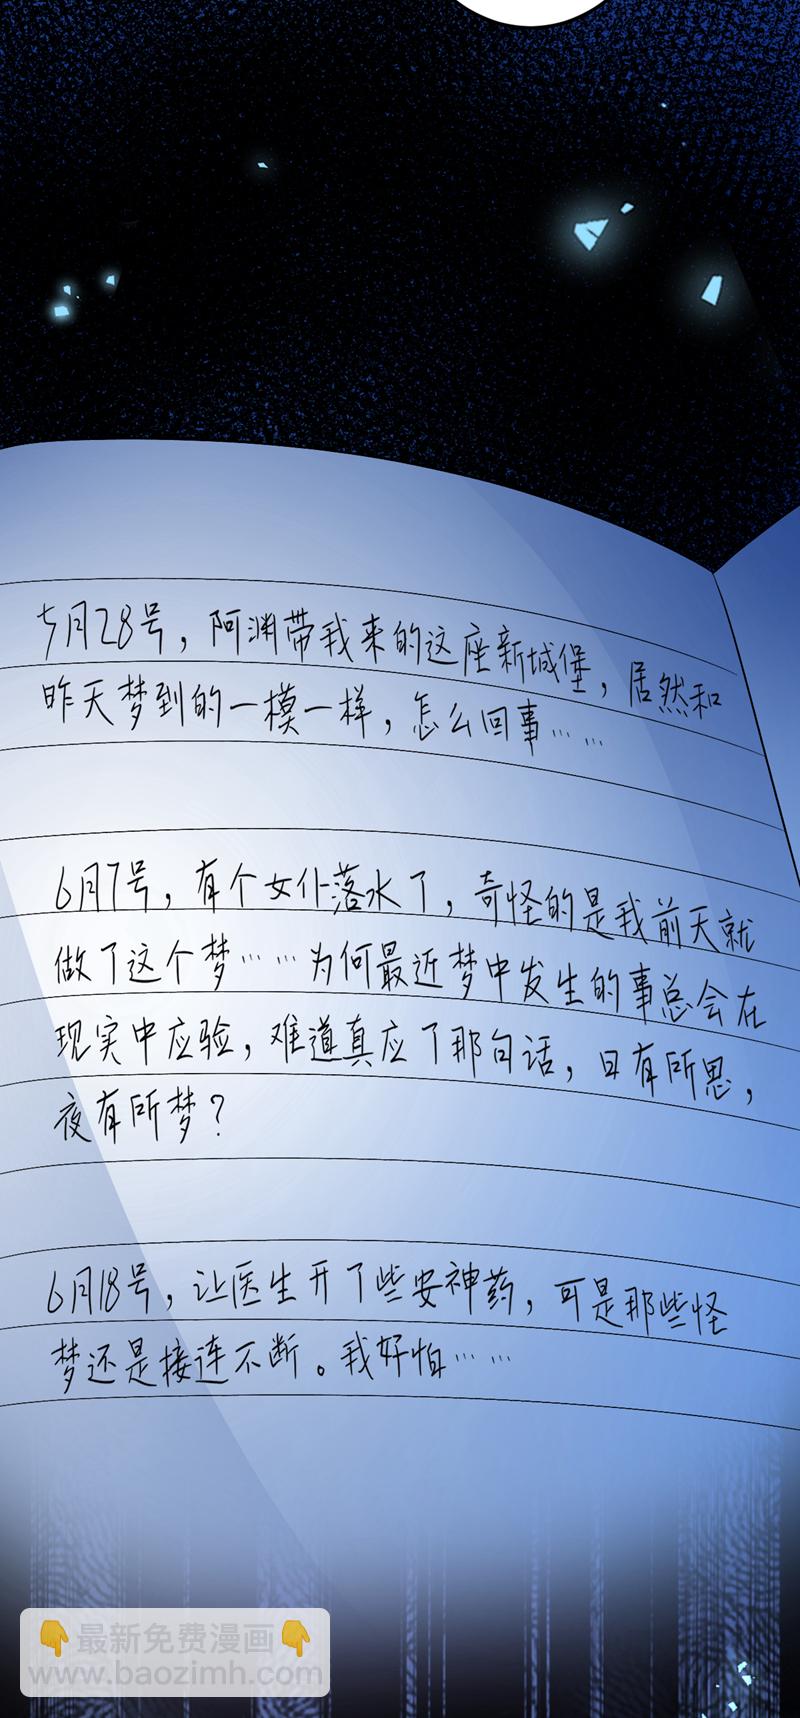 5月28号，阿渊带我来的这座新城堡，居然和
昨天梦到的一模一样，怎么回事……
6月7号，有个女仆落水了，奇怪的是我前天就
做了这个梦……为何最近梦中发生的事总会在
现实中应验，难道真应了那句话，日有所思，
夜有所梦？
6月18号，让医生开了些安神药，可是那些怪
梦还是接连不断。我好怕……
👇最新免费漫画👇
www.baozimh.com